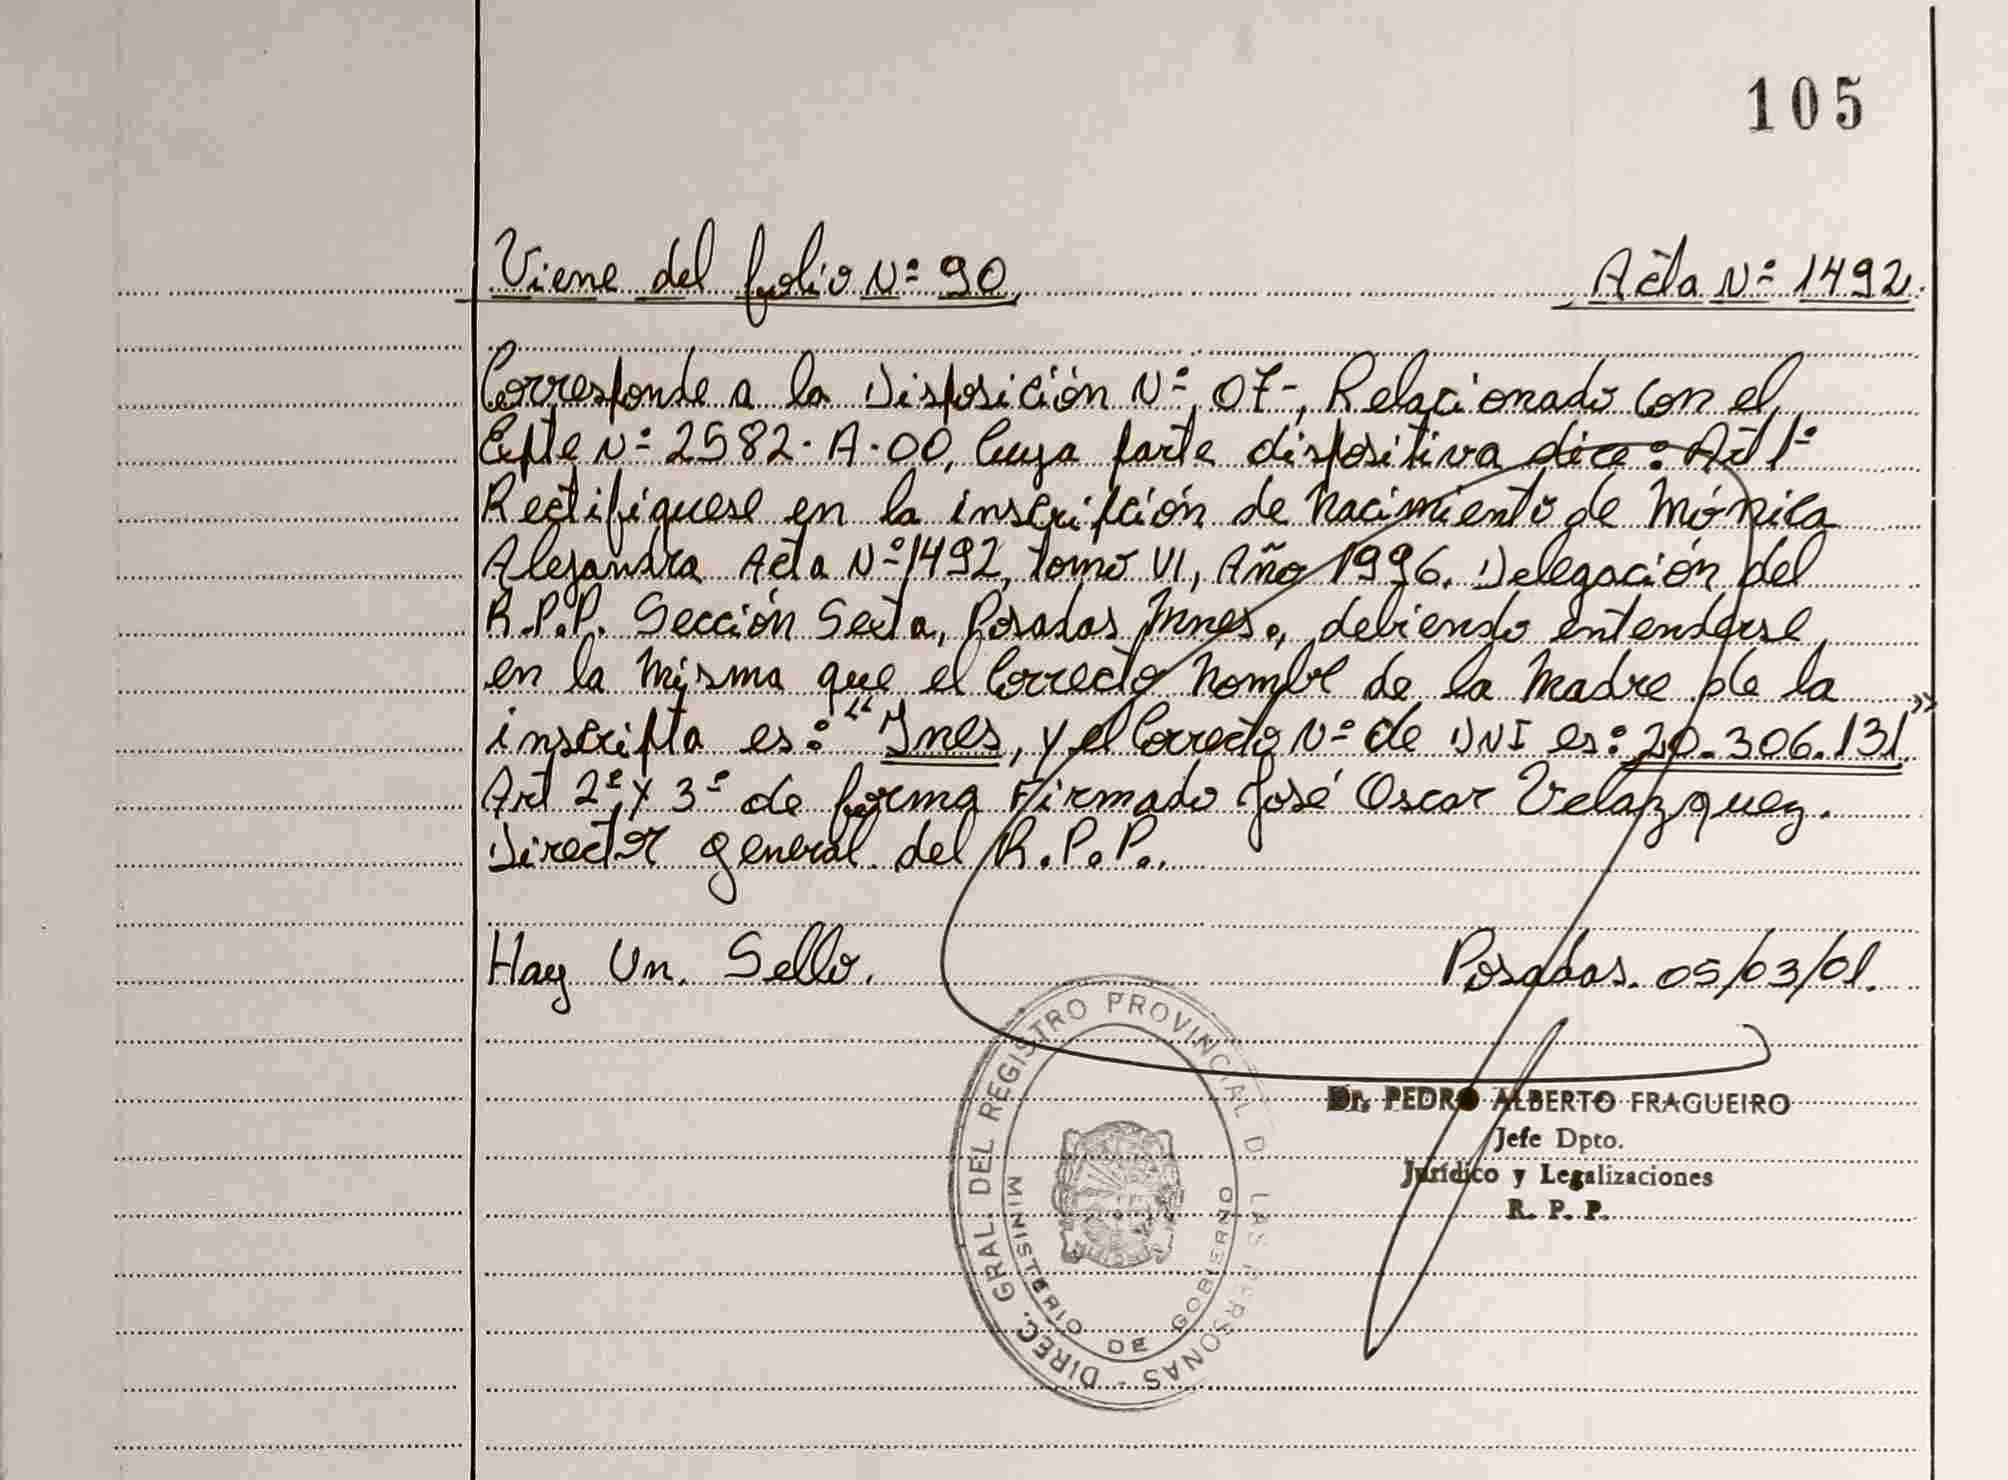 105
Viene del folio Nº 90 Acta Nº 1492.
Corresponde a la Disposición Nº 07-, Relacionado con el
Expte Nº 2582-A-00, Cuya parte dispositiva dice: Art 1º
Rectifiquese en la inscripción de Nacimiento de Mónica
Alejandra Acta Nº 1492, tomo VI, Año 1996. Delegación del
R.P.P. Sección Sexta, Posadas Mnes., debiendo entenderse
en la misma que el Correcto Nombre de la Madre de la
inscripta es: "Ines, y el Correcto Nº de DNI es: 20.306.131"
Art 2º y 3º de forma Firmado José Oscar Velazquez.
Director general del R.P.P.
Hay Un. Sello. Posadas. 05/03/01.
DIREC. GRAL. DEL REGISTRO PROVINCIAL D LAS PERSONAS -
MINISTERIO DE GOBIERNO
Dr. PEDRO ALBERTO FRAGUEIRO
Jefe Dpto.
Jurídico y Legalizaciones
R. P. P.